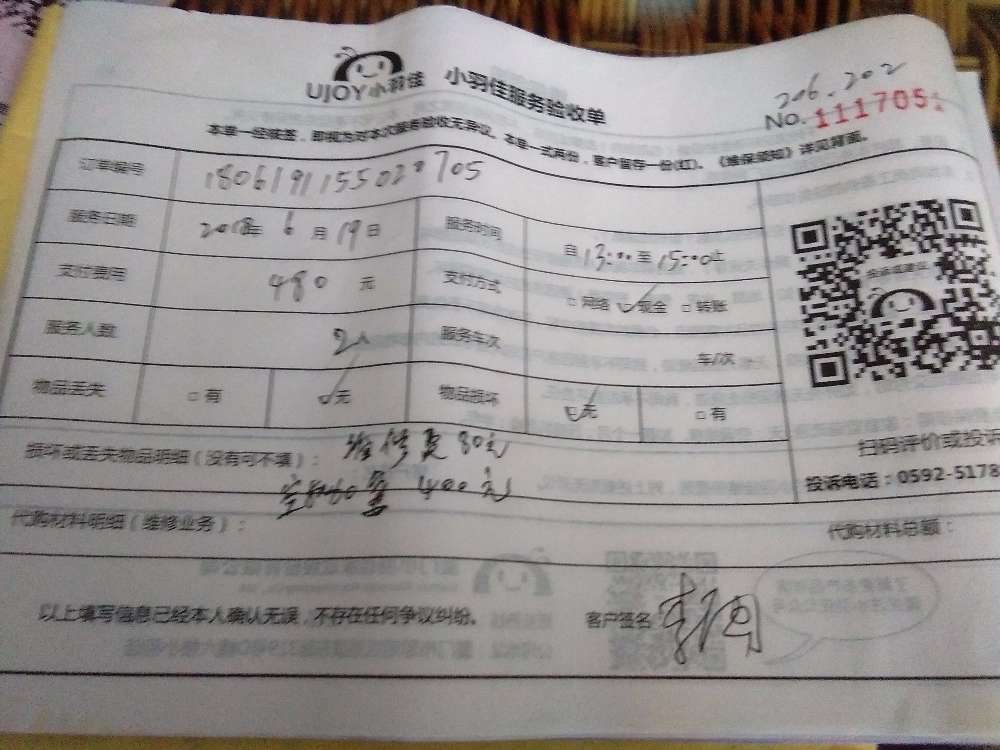 UJOY小羽佳 小羽佳服务验收单
206.202
No. 111705
本单一经核签，即视为对本次服务验收无异议。本单一式两份，客户留存一份(红)。《维保须知》详见背面。
订单编号 1806191155028705
服务日期 2018年 6 月 19 日 服务时间 自 13:00 至 15:00 止
支付费用 480 元 支付方式 □ 网络 ☑ 现金 □ 转账
服务人数 2人 服务车次 车/次
物品丢失 □ 有 ☑ 无 物品损坏 ☑ 无 □ 有
扫码评价或投诉
损坏或丢失物品明细（没有可不填）： 维修费 80元
400元
投诉电话：0592-5178
代购材料明细（维修业务）： 代购材料总额：
以上填写信息已经本人确认无误，不存在任何争议纠纷。 客户签名